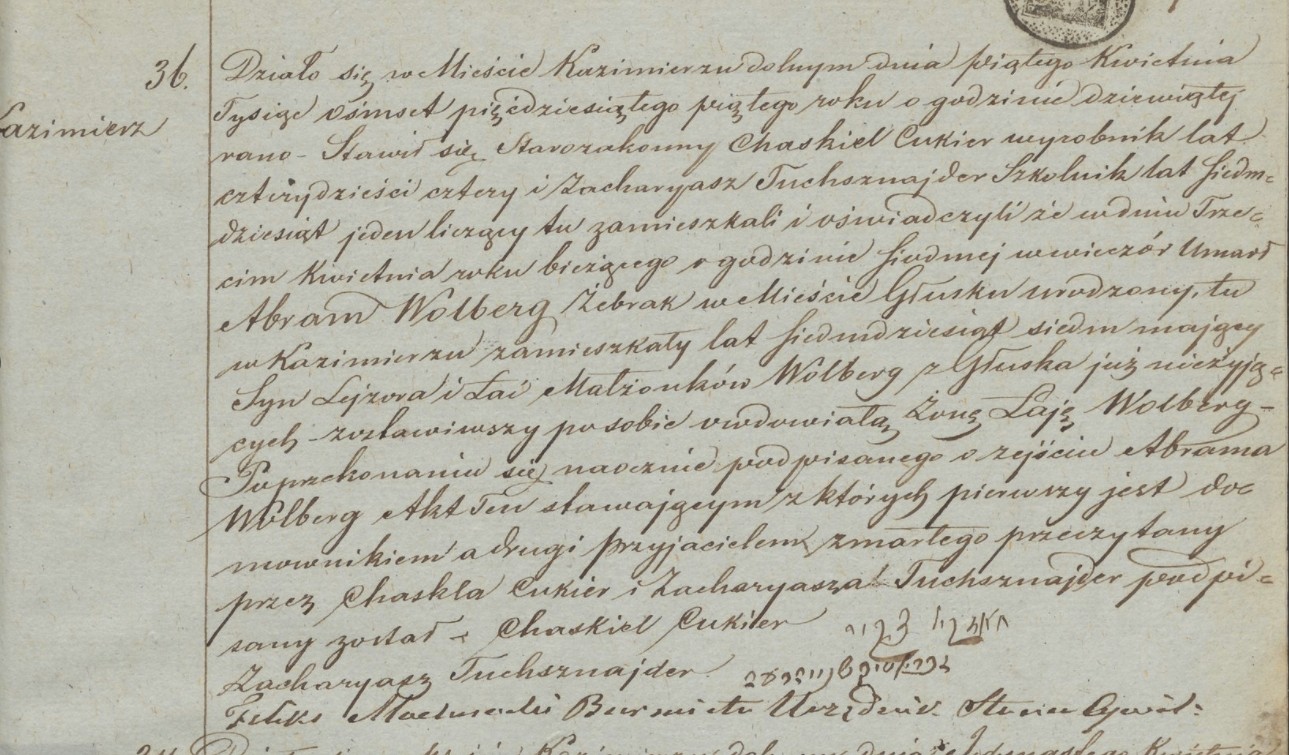 36.
Kazimierz
Działo się w Mieście Kazimierzu dolnym dnia piątego Kwietnia
Tysiąc ośmset pięćdziesiątego piątego roku o godzinie dziewiątej
rano – Stawił się Starozakonny Chaskiel Cukier wyrobnik lat
czterydzieści cztery i Zacharyasz Tuchsznajder Szkolnik lat siedm=
dziesiąt jeden liczący tu zamieszkali i oświadczyli że w dniu Trze=
cim Kwietnia roku bieżącego o godzinie siodmej w wieczór Umarł
Abram Wolberg Żebrak w Mieście Głusku urodzony, tu
w Kazimierzu zamieszkały lat siedmdziesiąt siedm mający
Syn Lejzora i Łai Małżonków Wolberg z Głuska już nieżyją=
cych – zostawiwszy po sobie owdowiałą Żonę Łaję Wolberg –
Po przekonaniu się naocznie podpisanego o zejściu Abrama
Wolberg Akt Ten stawającym z których pierwszy jest do=
mownikiem a drugi przyjacielem zmarłego przeczytany
przez Chaskla Cukier i Zacharyasza Tuchsznajder podpi=
sany został – Chaskiel Cukier
Zacharyasz Tuchsznajder
Feliks Burmistrz Urzędnik Stanu Cywil:
Działo się w Kazimierzu dolnym dnia Kwiet